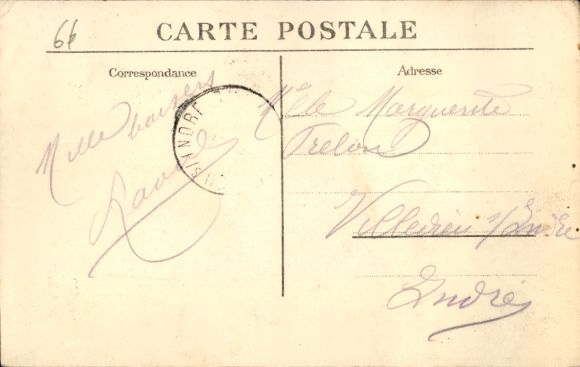 66
CARTE POSTALE
Correspondance
Adresse
Mille baisers
Mlle Marguerite
Trelon
Villedieu s/Indre
Indre